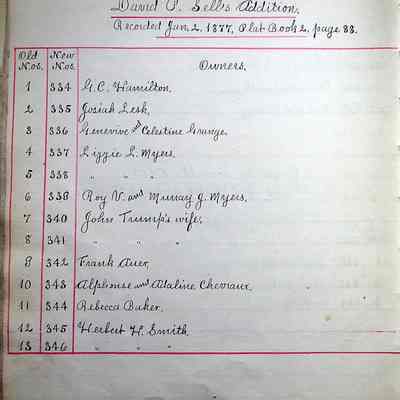 David P. Sell's Addition.
Recorded Jan. 2, 1877, Plat Book 2, page 88.
Old Nos. New Nos. Owners.
1 334 G.C. Hamilton.
2 335 Josiah Lesh.
3 336 Genevive and Celestine Grange.
4 337 Lizzie L. Myers.
5 338 " " "
6 339 Roy V. and Murray J. Myers.
7 340 John Trump's wife.
8 341 " " "
9 342 Frank Auer.
10 343 Alphonse and Adaline Chevraux.
11 344 Rebecca Baker.
12 345 Herbert H. Smith.
13 346 " " "